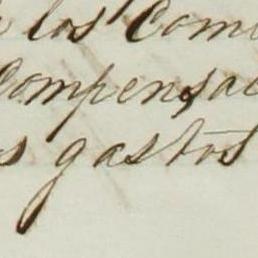 los Comi
Compensac
s gastos